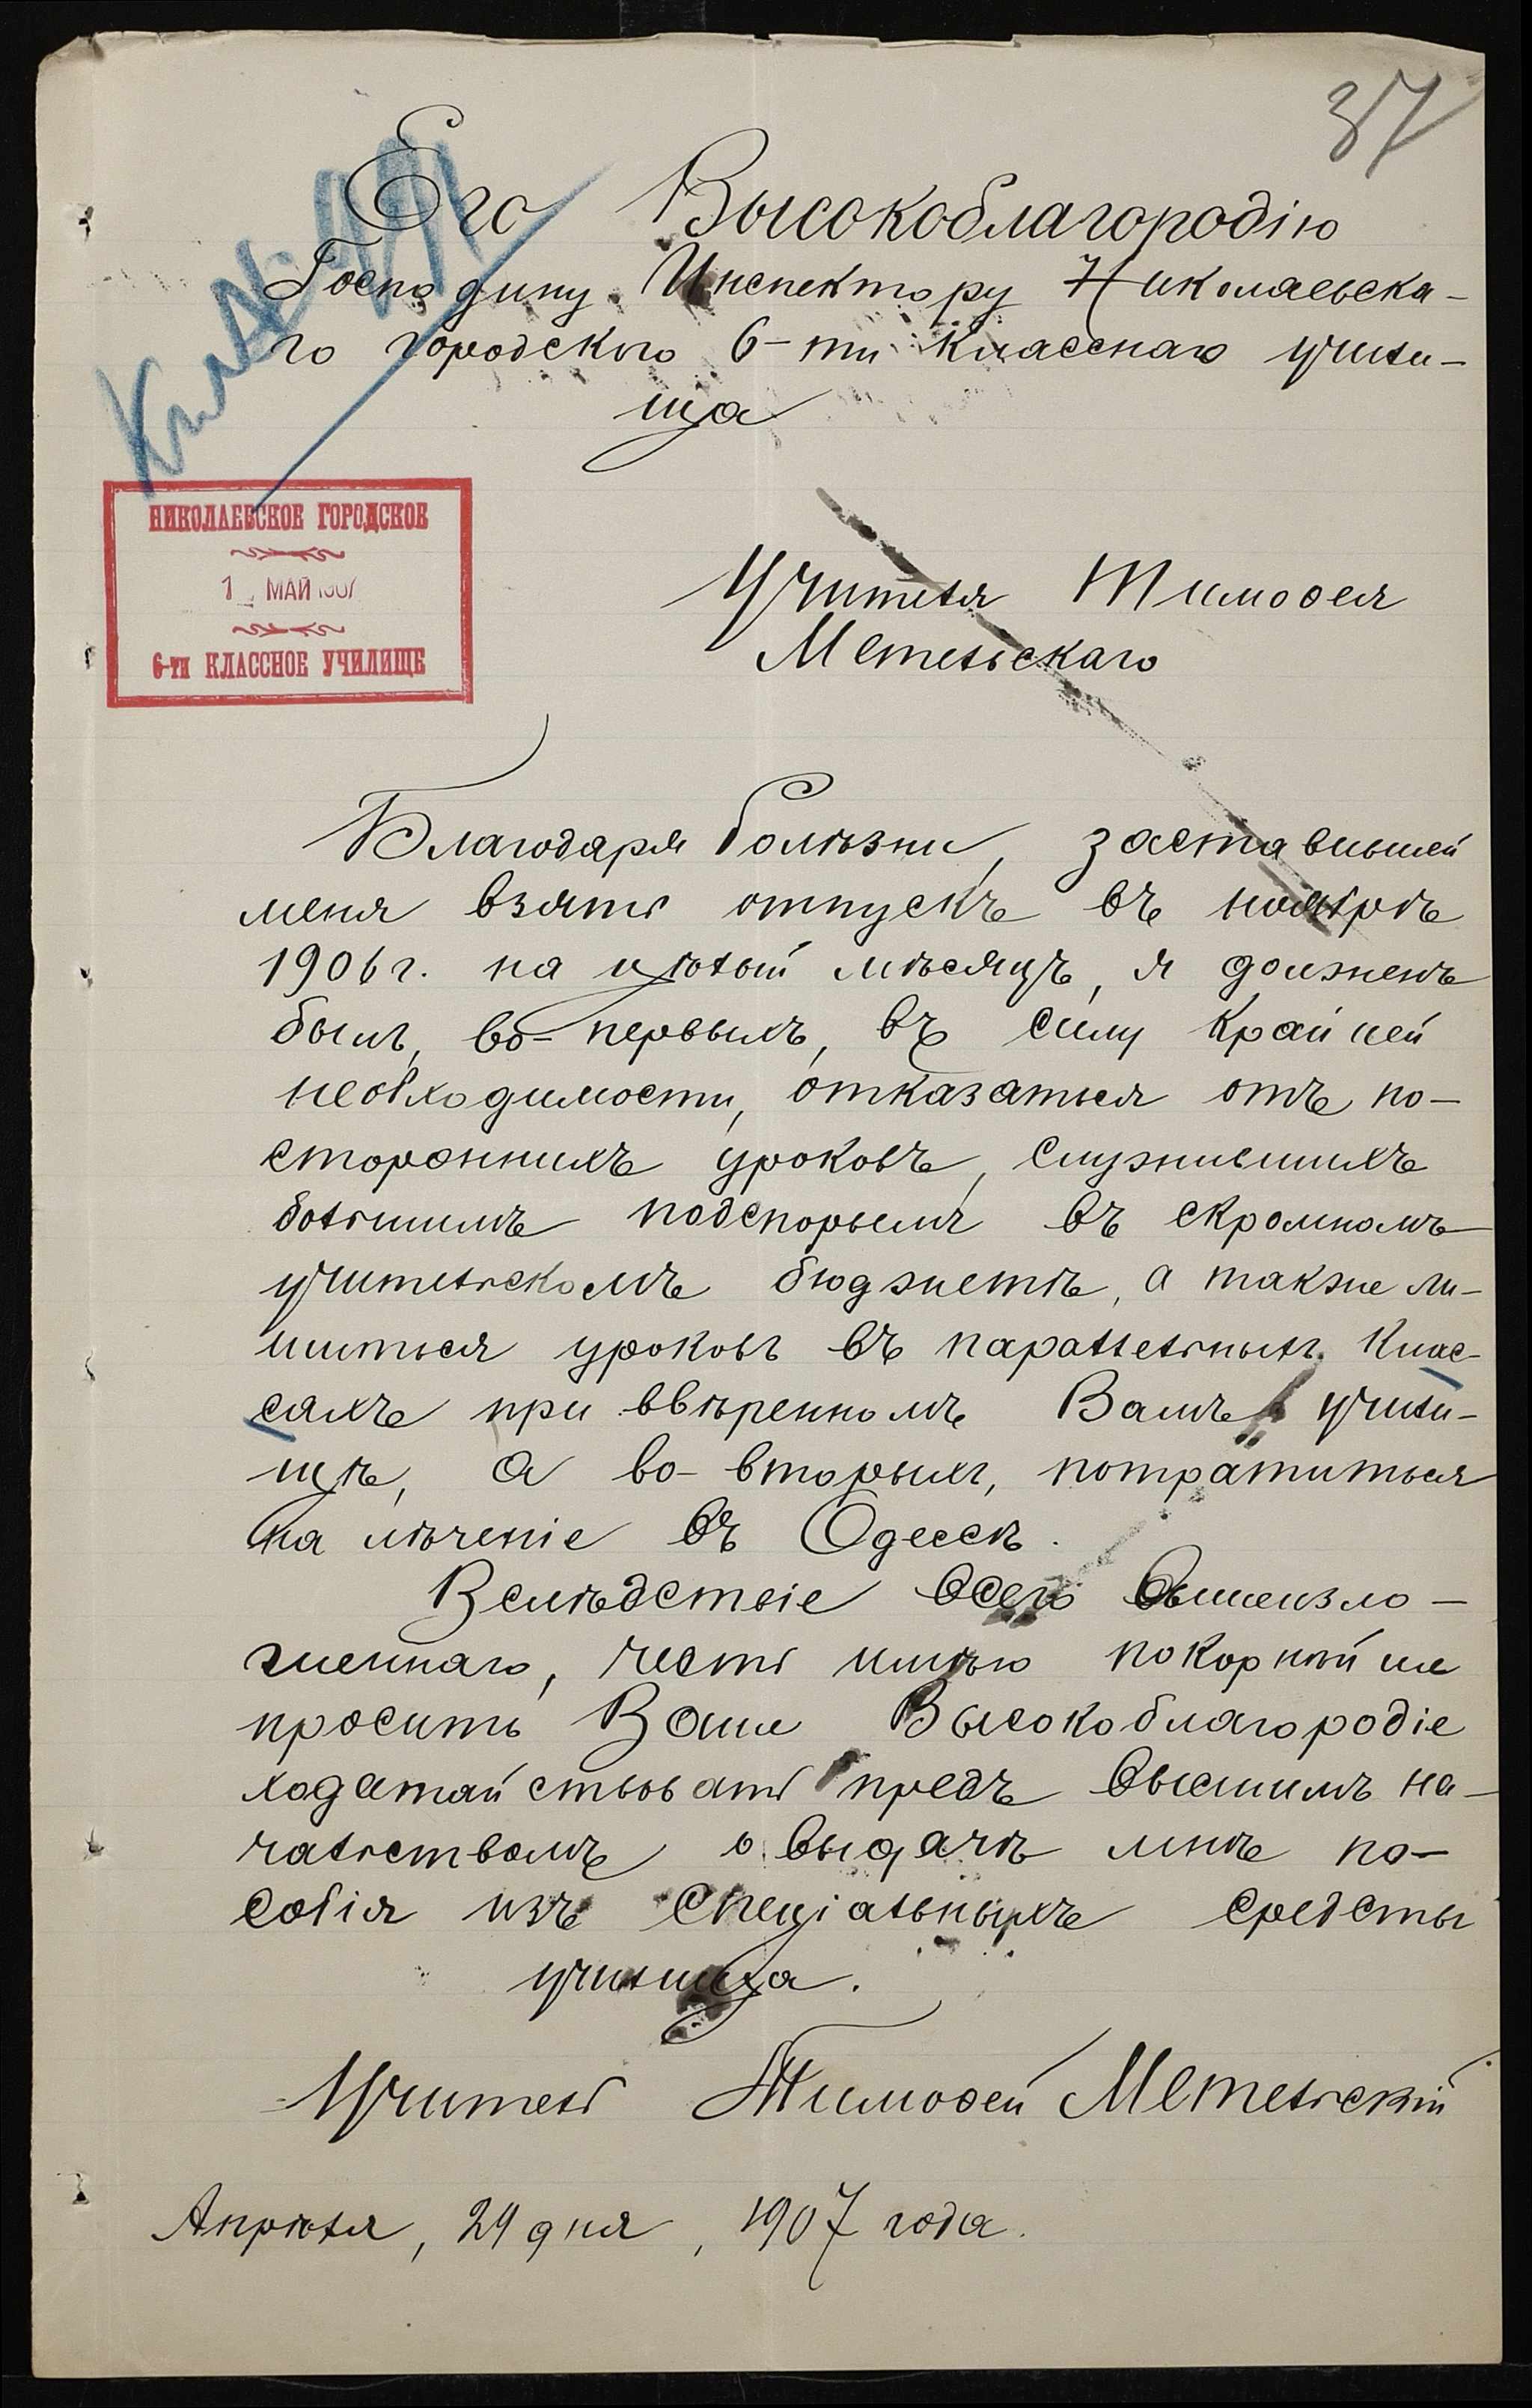 37
Его Высокоблагородію
Господину Инспектору Николаевска-
го городского 6-ти класснаго учили-
ща
НИКОЛАЕВСКОЕ ГОРОДСКОЕ
1 МАЙ 1907
6-ти КЛАССНОЕ УЧИЛИЩЕ
Учителя Тимофея
Метельскаго
Благодаря болѣзни, заставившей
меня взять отпускъ въ ноябрѣ
1906 г. на цѣлый мѣсяцъ, я долженъ
былъ, во-первыхъ, въ силу крайней
необходимости, отказаться отъ по-
стороннихъ уроковъ, служившихъ
большимъ подспорьемъ въ скромномъ
учительскомъ бюджетѣ, а также ли-
шиться уроковъ въ параллельныхъ клас-
сахъ при ввѣренномъ Вамъ учили-
щѣ, а во-вторыхъ, потратиться
на лѣченіе въ Одессѣ.
Вслѣдствіе всего вышеизло-
женнаго, честь имѣю покорнѣйше
просить Ваше Высокоблагородіе
ходатайствовать предъ высшимъ на-
чальствомъ о выдачѣ мнѣ по-
собія изъ спеціальныхъ средствъ
училища.
Учитель Тимофей Метельскій
Апрѣля, 29 дня, 1907 года.